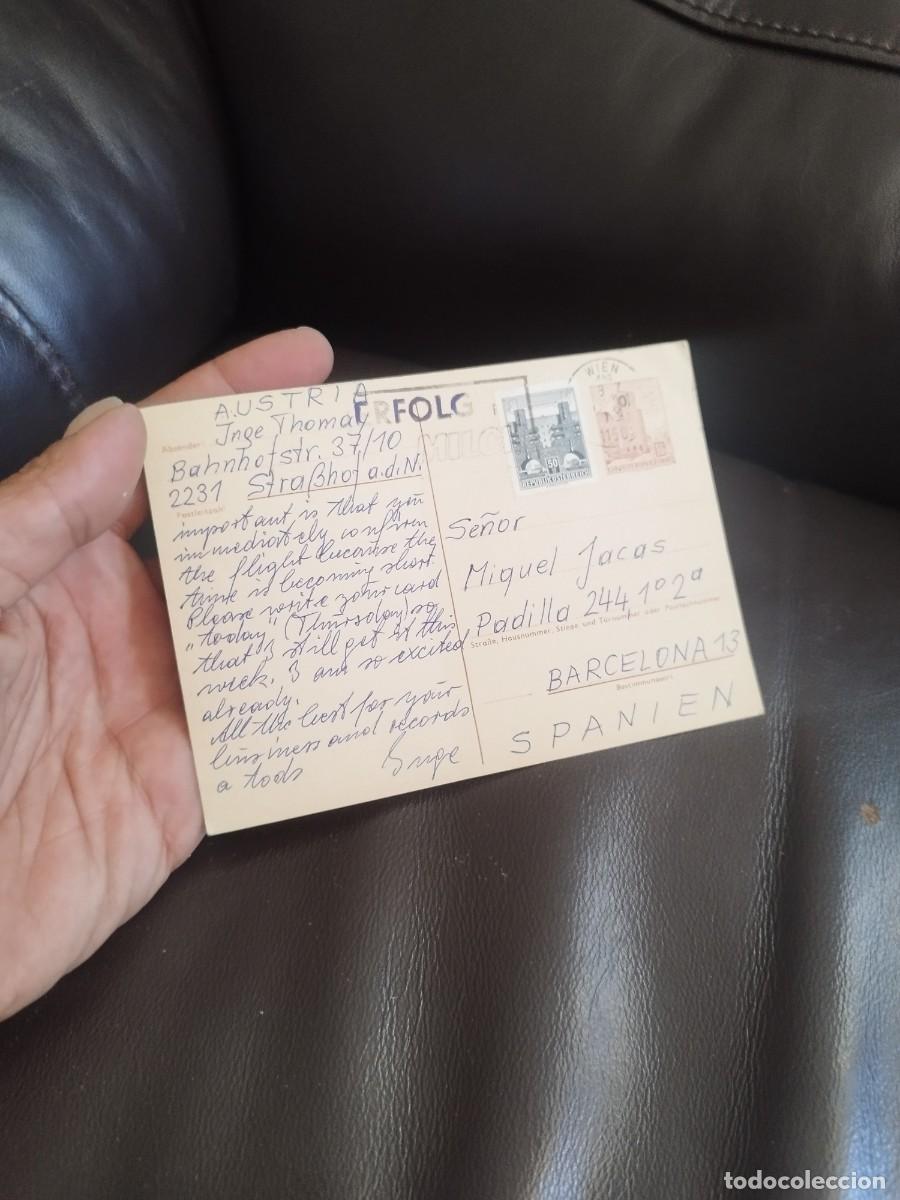 AUSTRIA
Absender:
Inge Thomas
Bahnhofstr. 37/10
2231 Straßhof a.d.N.
Postleitzahl
important is that you
immediately confirm
the flight because the
time is becoming short.
Please write your card
"today" (Thursday) so
that I still get it this
week. I am so excited
already.
All the best for your
business and records
a todos
Inge
ERFOLG
MILCH
WIEN
50
REPUBLIK ÖSTERREICH
Señor
Miquel Jacas
Padilla 244, 1º 2ª
Straße, Hausnummer, Stiege und Türnummer oder Postfachnummer
BARCELONA 13
Bestimmungsort
SPANIEN
todocoleccion